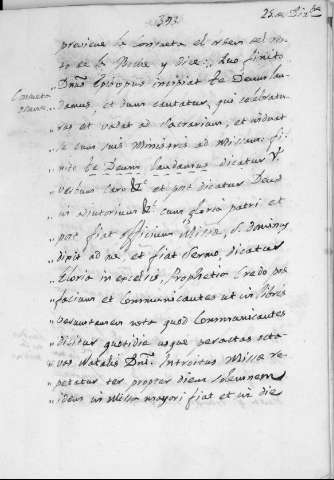 393
25 de Dizbe
previene la Consueta el orden del res-
to de la Noche y dice: Quo finito
Consueta
Dnus Episcopus incipiat te Deum lau-
"damus, et dum cantatur, qui celebratu-
"rus est vadat ad Sacrarium, et induat
"se cum suis Ministris ad Missam: fi-
"nito te Deum laudamus dicatur V.
"verbum caro &c et post dicatur Deus
"in adutorium &c cum gloria patri et
"post fiat officium Missa, S. dominus
"dixit ad me et fiat Sermo, dicatur
"Gloria in excelcis, Prophetia Credo pre
"facium et Communicantes ut in libris
"verumtamen nota quod Communicantes
"dicitur quotidie usque peractas octa-
"vas Natalis Dni. Introitus Missa re-
"petatur ter propter diem solemnem
"idem in Missa mayori fiat et in die